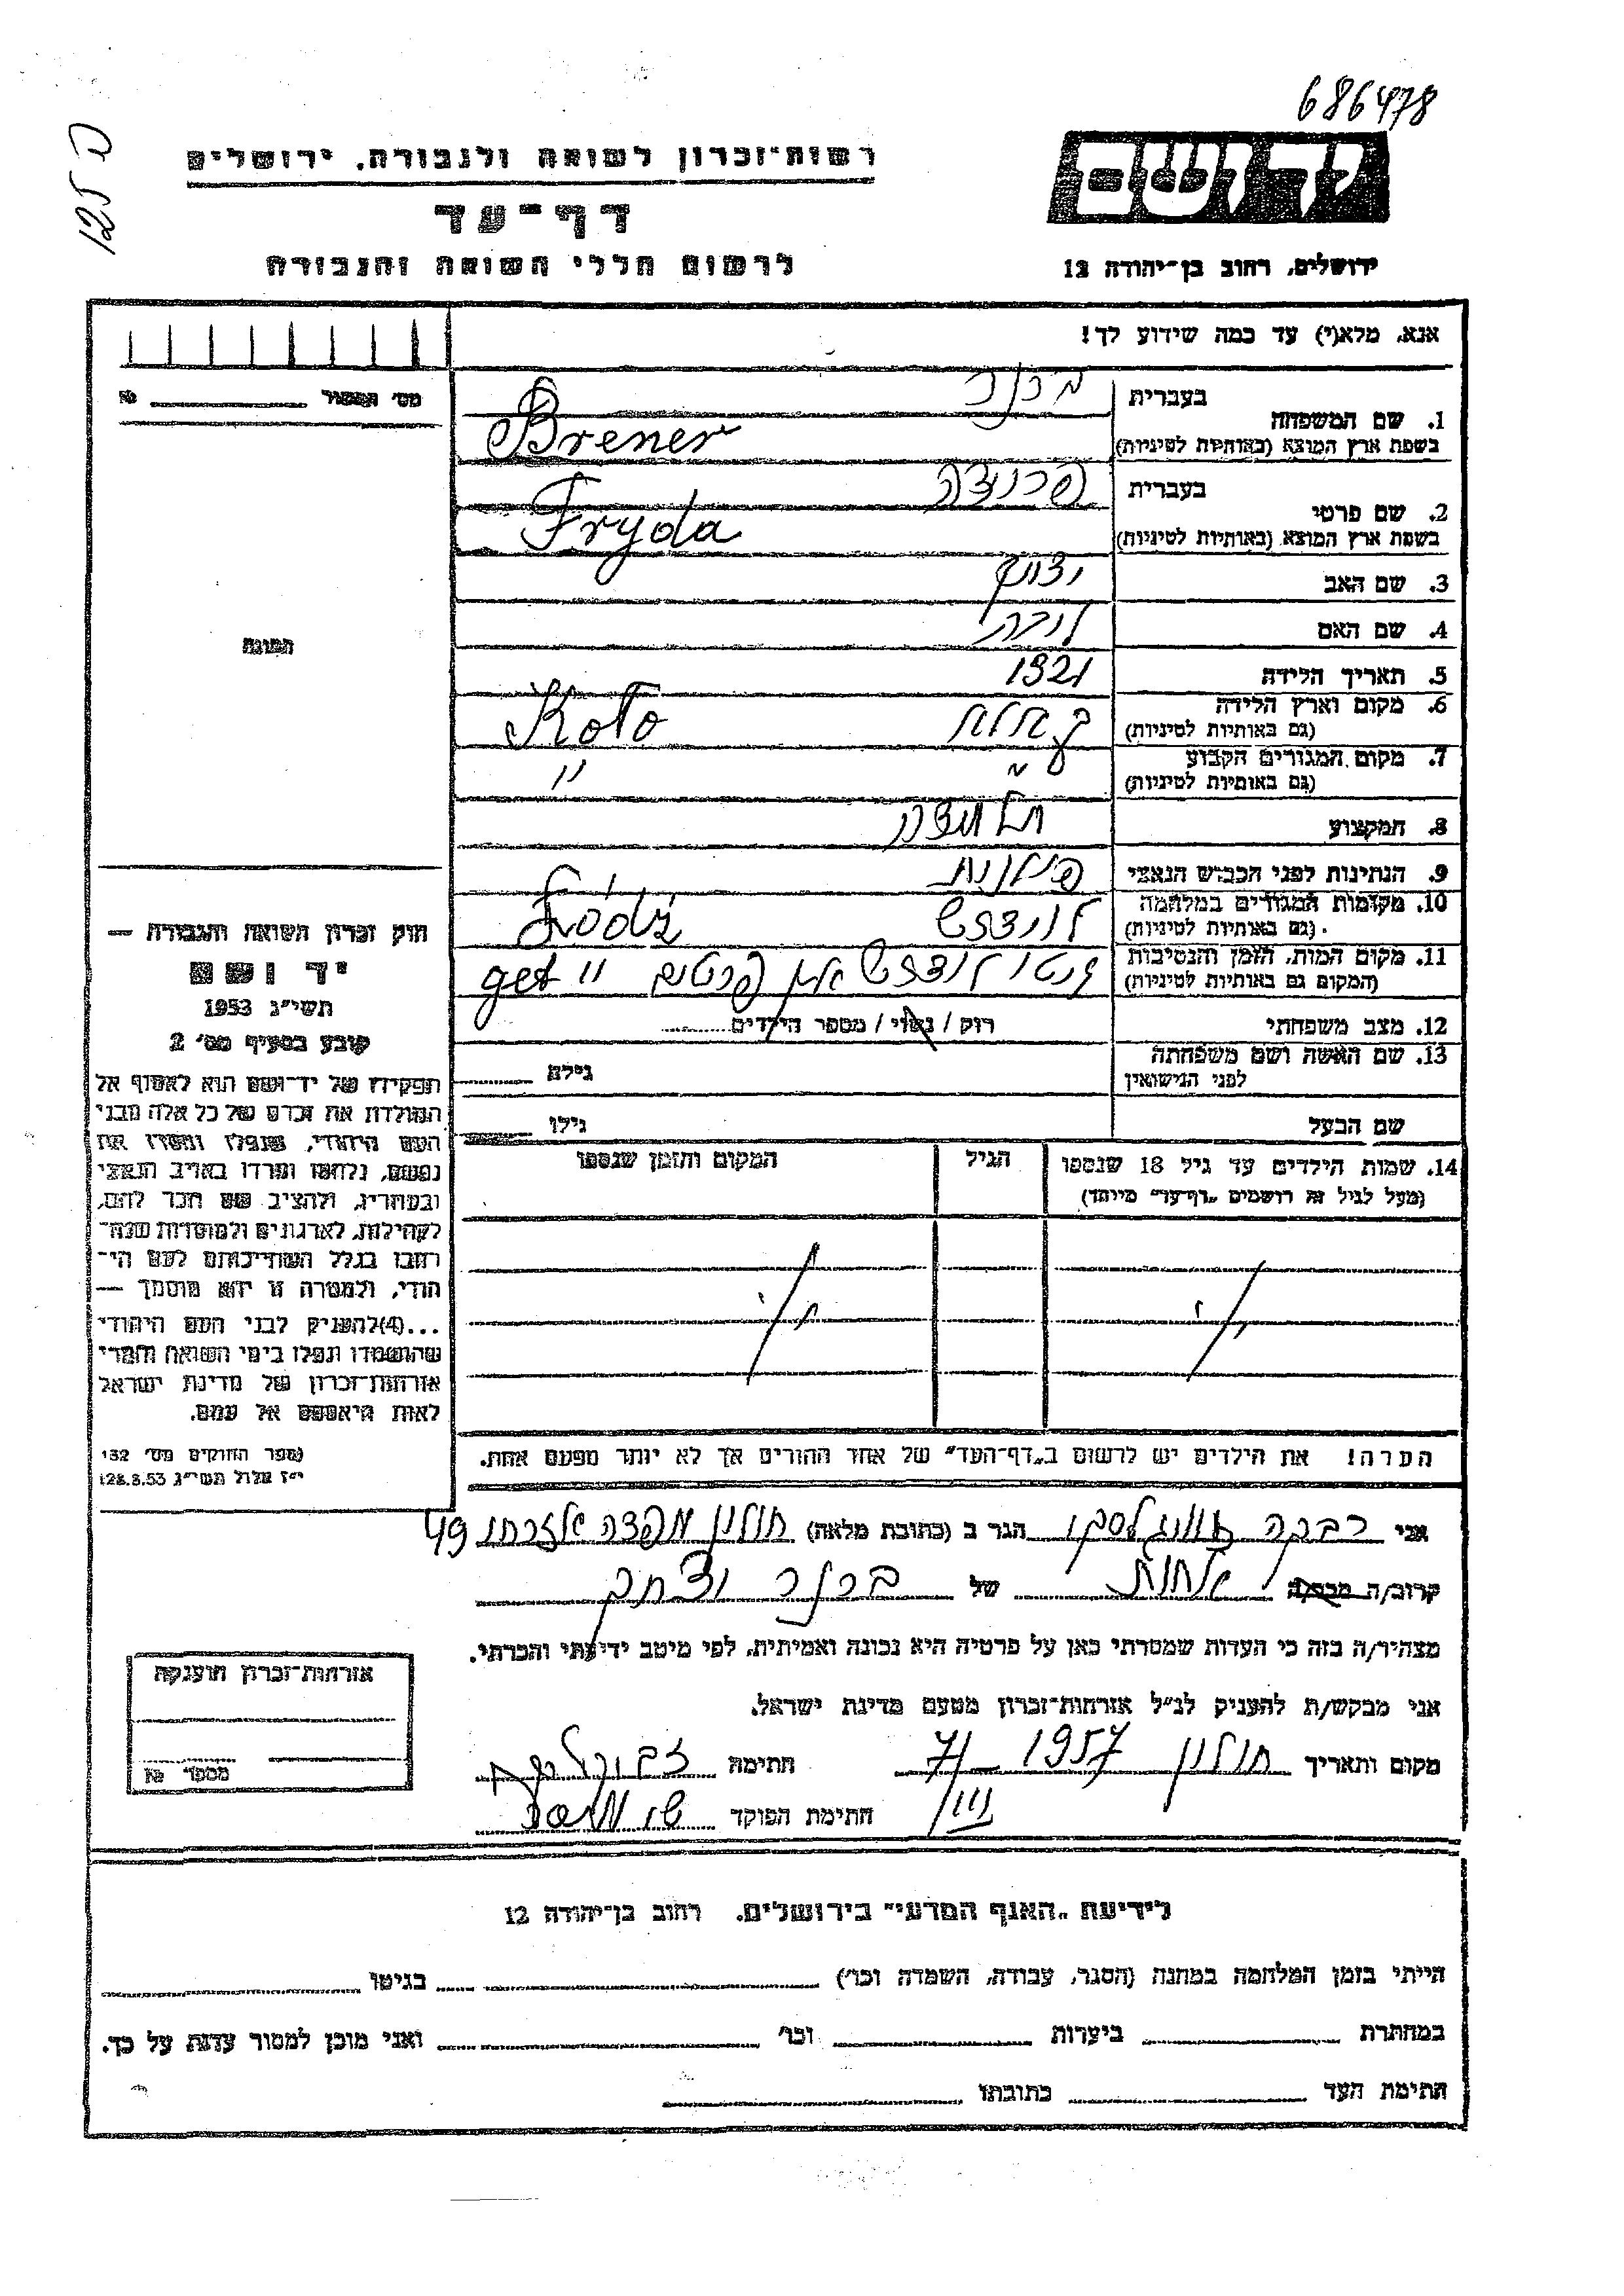 686478
125 ה
רשות־זכרון לשואה ולגבורה. ירושלים
יד ושם
דף־עד
לרשום חללי השואה והגבורה
ירושלים, רחוב בן־יהודה 12
אנא, מלא(י) עד כמה שידוע לך!
מס' המשור ___ №
1. שם המשפחה
בעברית ברנר
בשפת ארץ המוצא (באותיות לטיניות) Brener
2. שם פרטי
בעברית פרידה
בשפת ארץ המוצא (באותיות לטיניות) Fryda
3. שם האב יצחק
4. שם האם
5. תאריך הלידה 1921
6. מקום וארץ הלידה
(גם באותיות לטיניות) Koło
7. מקום המגורים הקבוע
(גם באותיות לטיניות) " "
8. המקצוע תלמידה
9. הנתינות לפני הכבוש הנאצי פולנית
10. מקומות המגורים במלחמה
(גם באותיות לטיניות) לודז' Łódź
11. מקום המות, הזמן והנסיבות
(המקום גם באותיות לטיניות) גטו אין פרטים " get
12. מצב משפחתי רוק / נשוי / מספר הילדים
13. שם האשה ושם משפחתה
לפני הנישואין גילה
שם הבעל גילו
14. שמות הילדים עד גיל 18 שנספו הגיל המקום והזמן שנספו
(מעל לגיל זה רושמים „דף־עד" מיוחד)
התמונה
חוק זכרון השואה והגבורה —
יד ושם
תשי״ג 1953
קובע בסעיף מס' 2
תפקידו של יד־ושם הוא לאסוף אל
המולדת את זכרם של כל אלה מבני
העם היהודי, שנפלו ומסרו את
נפשם, נלחמו ומרדו באויב הנאצי
ובעוזריו, ולהציב שם וזכר להם,
לקהילות, לארגונים ולמוסדות שנח־
רבו בגלל השתייכותם לעם הי־
הודי, ולמטרה זו יהא מוסמך —
...(4)להעניק לבני העם היהודי
שהושמדו ונפלו בימי השואה והמרי
אזרחות־זכרון של מדינת ישראל
לאות היאספם אל עמם.
(ספר החוקים מס' 132
י״ז אלול תשי״ג 28.8.53)
הערה! את הילדים יש לרשום ב„דף־העד" של אחד ההורים אך לא יותר מפעם אחת.
אני רבקה הגר ב (כתובת מלאה) חולון אזרחי 49
קרוב/ה מכר/ה אחות של ברנר יצחק
מצהיר/ה בזה כי העדות שמסרתי כאן על פרטיה היא נכונה ואמיתית, לפי מיטב ידיעתי והכרתי.
אני מבקש/ת להעניק לנ״ל אזרחות־זכרון מטעם מדינת ישראל.
מקום ותאריך חולון 1957 חתימה
חתימת הפוקד
אזרחות־זכרון הוענקה
מספר №
לידיעת „האגף המדעי" בירושלים. רחוב בן־יהודה 12
הייתי בזמן המלחמה במחנה (הסגר, עבודה, השמדה וכר') בגיטו
במחתרת ביערות וכר' ואני מוכן למסור עדות על כך.
חתימת העד כתובתו